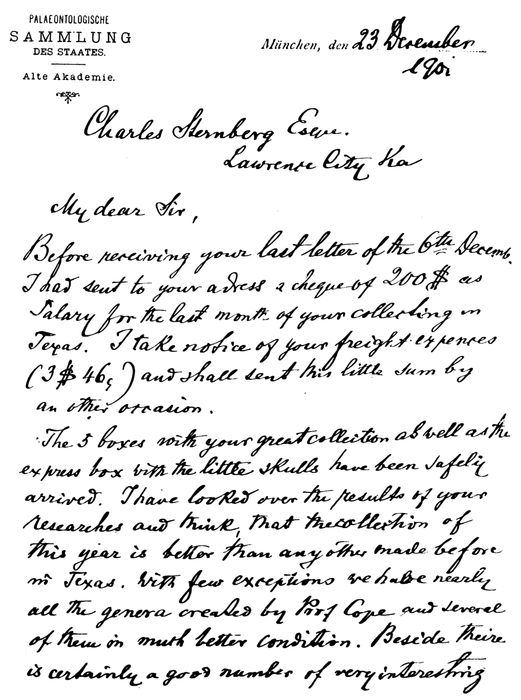 PALAEONTOLOGISCHE
SAMMLUNG
DES STAATES.
Alte Akademie.
München, den 23 December
1901
Charles Sternberg Esqu.
Lawrence City Ka
My dear Sir,
Before receiving your last letter of the 6th Decemb.
I had sent to your adress a cheque of 200 $ as
Salary for the last month of your collecting in
Texas. I take notice of your freight expences
(3 $ 46 c) and shall sent this little sum by
an other occasion.
The 5 boxes with your great collection as well as the
express box with the little skulls have been safely
arrived. I have looked over the results of your
researches and think, that the collection of
this year is better than any other made before
in Texas. With few exceptions we have nearly
all the genera created by Prof Cope and several
of them in much better condition. Beside theire
is certainly a good number of very interesting